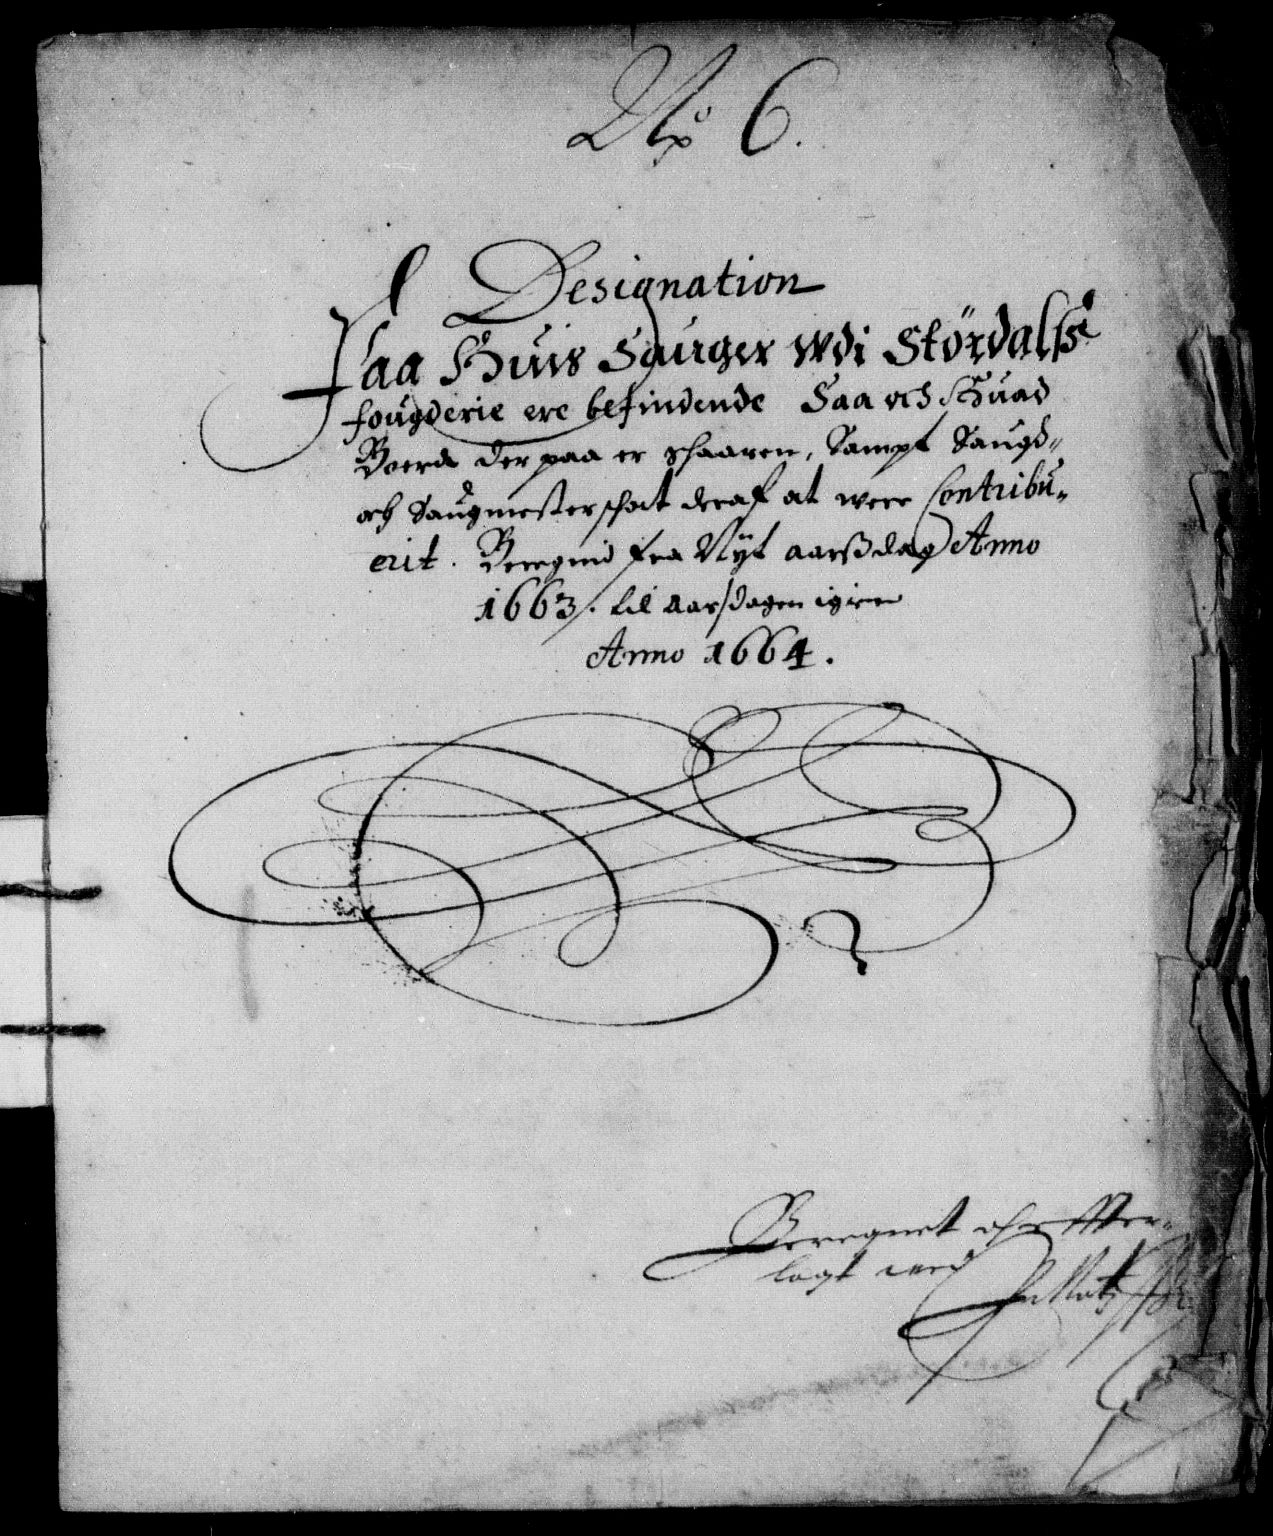 No 6.
Designation
Paa Huis Sauger wdi Stördalss
fougderie ere befindende Saa och Huad
Boerd der paa er schaaren, Sampt Saugd-
och Saugmesterschat deraf at were Contribu-
erit. Beregnid fra Nyt aarssdag Anno
1663. til Aarsdagen igien
Anno 1664.
Beregnet och offuer-
lagt med